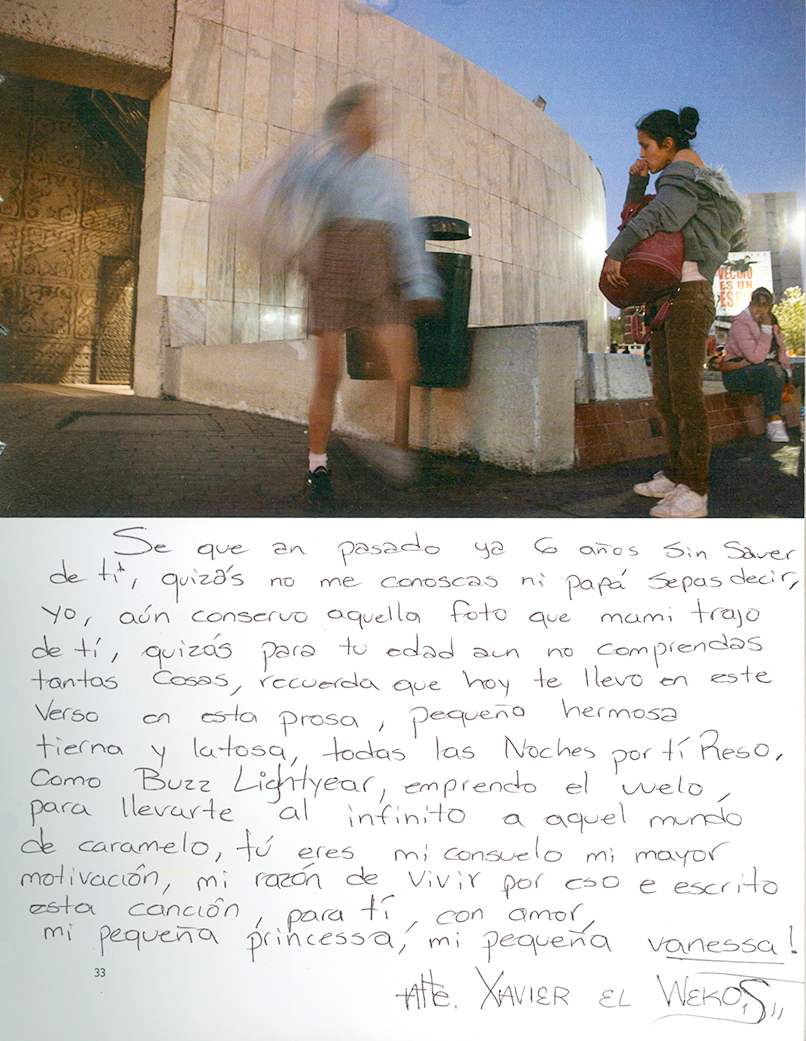 VECINO
ES UN
ES
Se que an pasado ya 6 años sin saver
de tí, quizás no me conoscas ni papá sepas decir,
yo, aún conservo aquella foto que mami trajo
de tí, quizás para tu edad aun no comprendas
tantas cosas, recuerda que hoy te llevo en este
verso en esta prosa, pequeña hermosa
tierna y latosa, todas las Noches por tí Reso,
Como Buzz Lightyear, emprendo el vuelo,
para llevarte al infinito a aquel mundo
de caramelo, tú eres mi consuelo mi mayor
motivación, mi razón de vivir por eso e escrito
esta canción, para tí, con amor,
mi pequeña princessa, mi pequeña vanessa!
33
Atte. XAVIER EL WEKOS,,